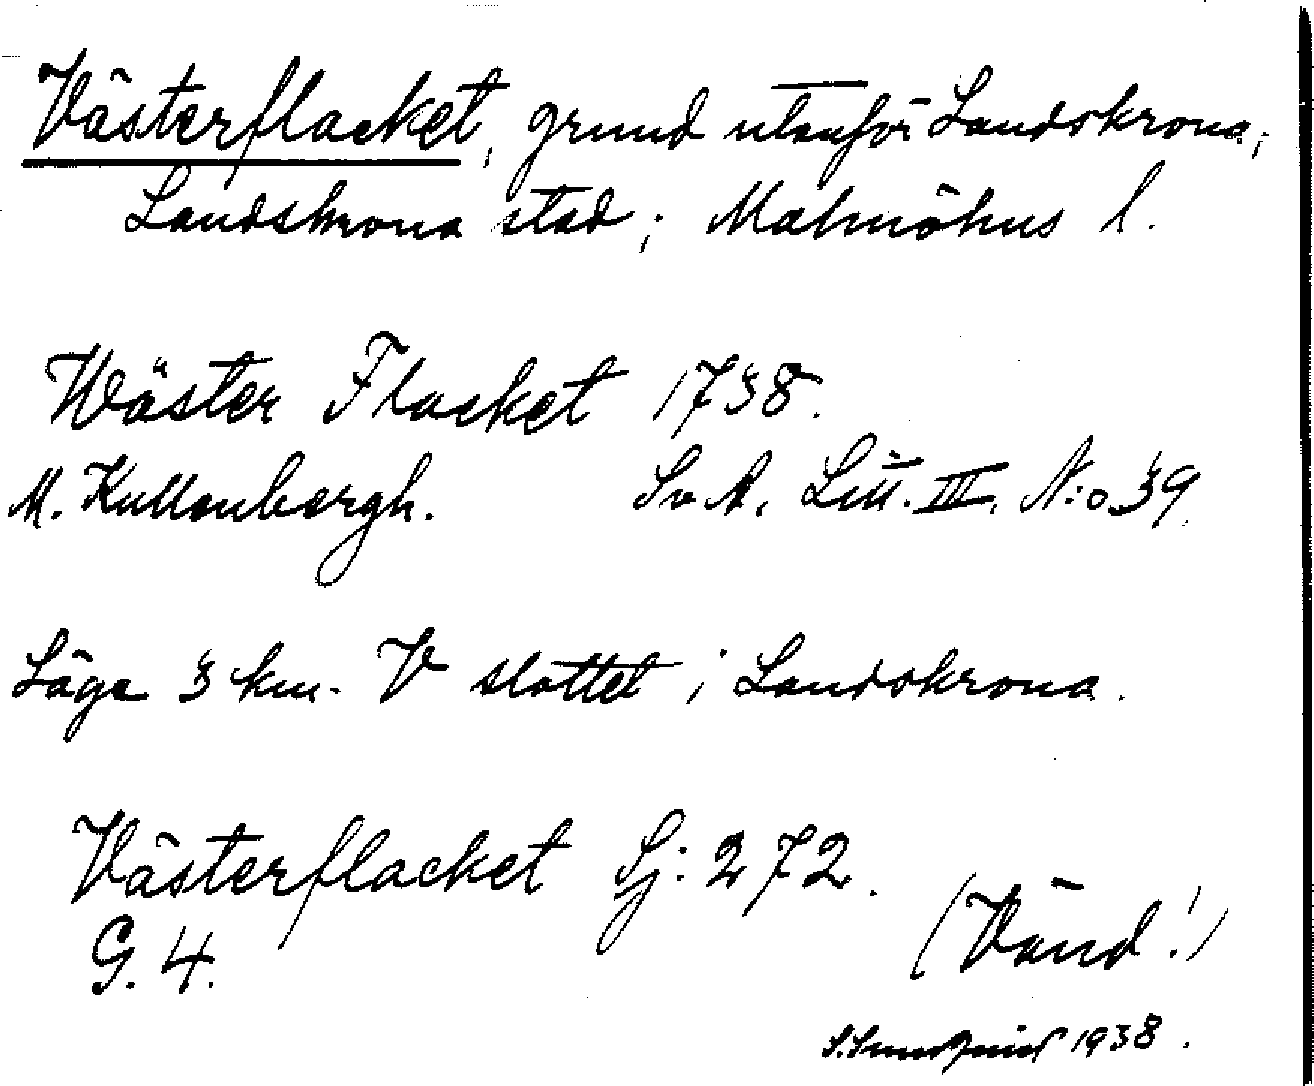 Västerflacket, grund utanför Landskrona;
Landskrona stad; Malmöhus l.
Wäster Flacket 1738.
M. Kullenbergh. Sv A. Litt. III. N:o 39.
Läge 3 km. V slottet i Landskrona.
Västerflacket Sj: 272.
G. 4. (Vänd!)
S. Sundquist 1938.